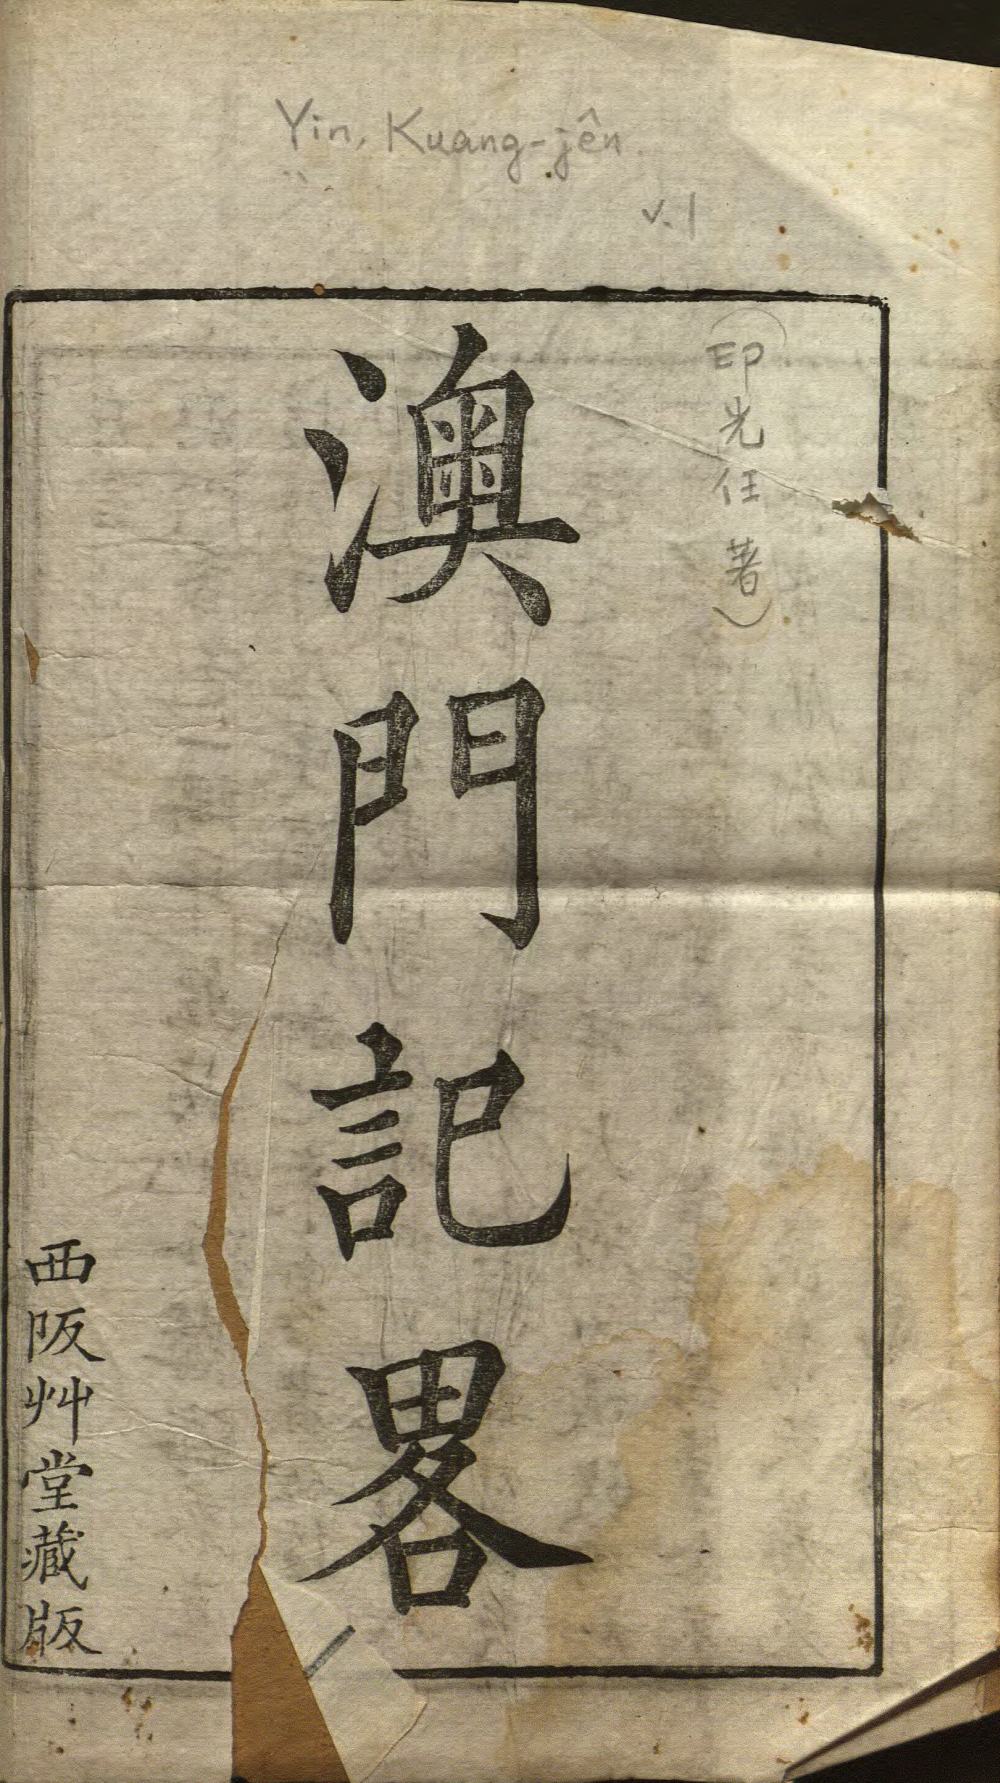 Yin, Kuang-jên
v.1
(印光任著)
澳門記畧
西阪艸堂藏版